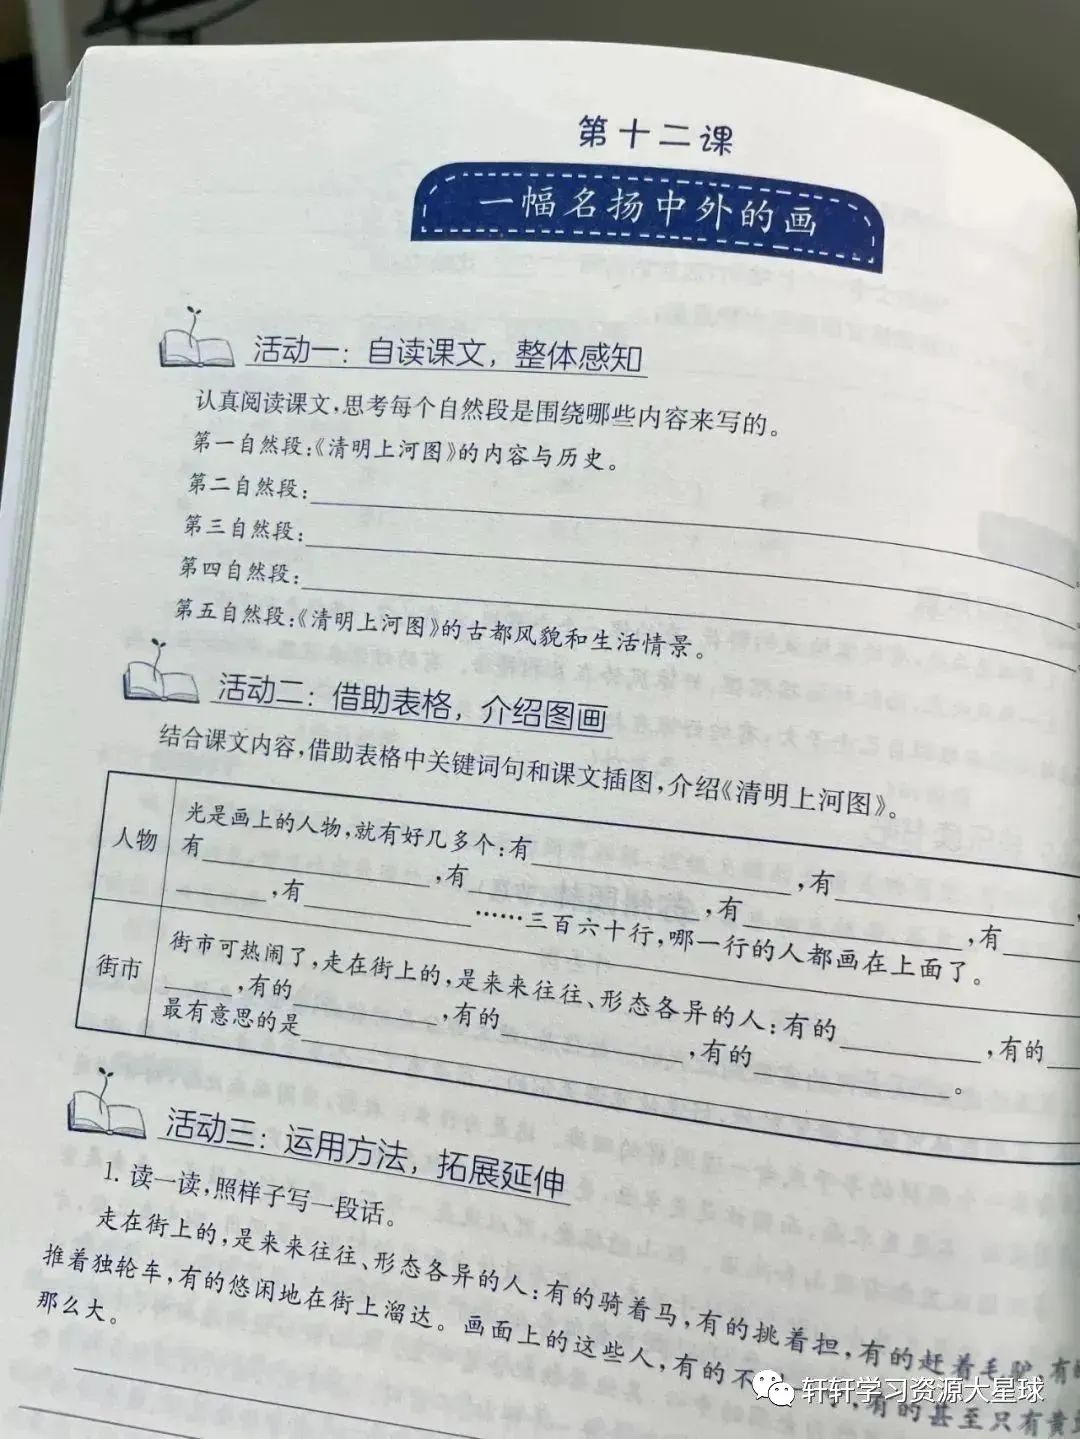 第十二课
一幅名扬中外的画
活动一：自读课文，整体感知
认真阅读课文，思考每个自然段是围绕哪些内容来写的。
第一自然段：《清明上河图》的内容与历史。
第二自然段：
第三自然段：
第四自然段：
第五自然段：《清明上河图》的古都风貌和生活情景。
活动二：借助表格，介绍图画
结合课文内容，借助表格中关键词句和课文插图，介绍《清明上河图》。
人物
光是画上的人物，就有好几多个：有____，有____
有____，有____，有____，有____
____，有____……三百六十行，哪一行的人都画在上面了。
街市
街市可热闹了，走在街上的，是来来往往、形态各异的人：有的____，有的
____，有的____，有的____，有的____。
最有意思的是____
活动三：运用方法，拓展延伸
1. 读一读，照样子写一段话。
走在街上的，是来来往往、形态各异的人：有的骑着马，有的挑着担，有的赶着毛驴，有的
推着独轮车，有的悠闲地在街上溜达。画面上的这些人，有的不，有的甚至只有黄
那么大。
轩轩学习资源大星球